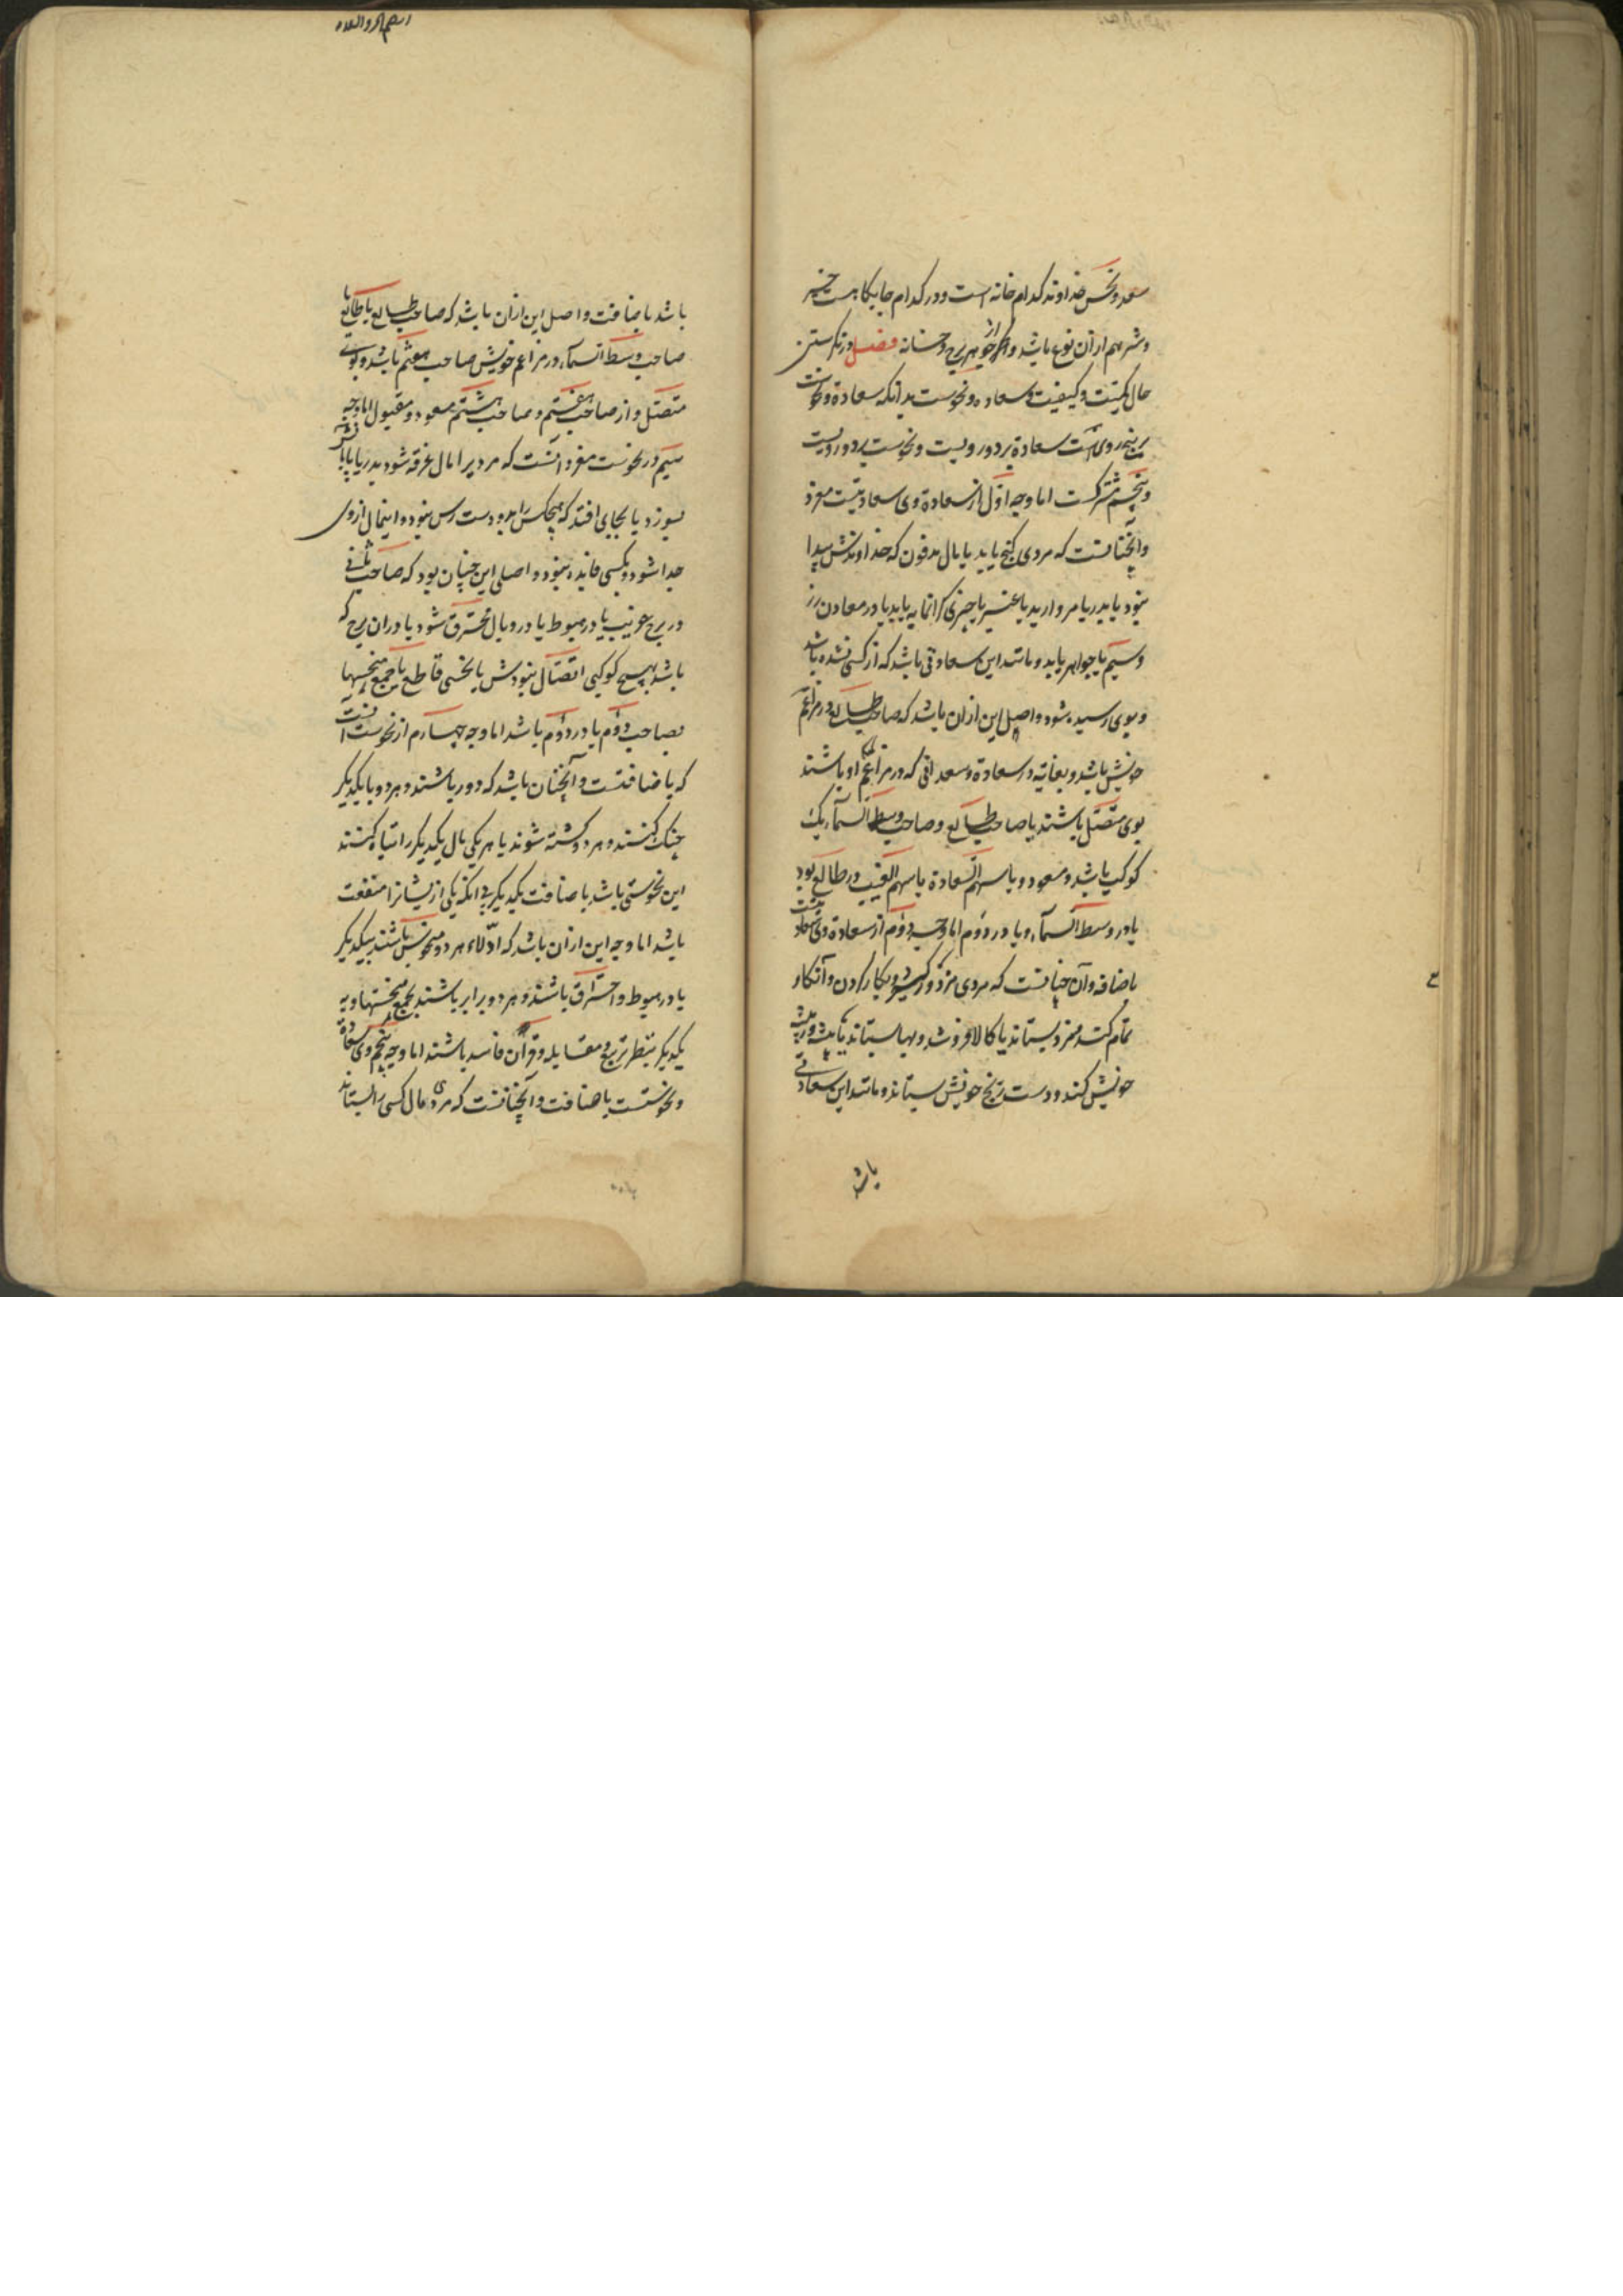 سعد و نحس خداوند کدام خانه است و در کدام جایگاهست خیر
و شر هم ازان نوع باشد و از جوهر برج و خانه فصل در نکرستن
حال کمیّت و کیفیت سعاده و نحوست بدانکه سعادة و نحوست
بر پنج روی است سعادة بر دو رویست و نحوست بر دو رویست
و پنجم مشترکست اما وجه اوّل از سعادة وی سعادتیست مفرد
و آنچنانست که مردی کنج یابد یا مال مدفون که خداوندش پیدا
نبود یا بدریا مروارید یا عنبر یا چیزی کرانمایه یابد یا در معادن زر
و سیم یا جواهر یابد و مانند این سعادتی باشد که از کسی نشده باشد
و بوی رسیده شود و اصل این ازان باشد که صاحب طالع در مزاعم
خویش باشد و بغایة در سعادة و سعدانی که در مزاعم او باشند
بوی متصل باشند یا صاحب طالع و صاحب وسط السماء یک
کوکب باشد و مسعود و با سهم السعادة یا سهم الغیب در طالع بود
یا در وسط السماء و یا در دوم اما وجه دوم از سعادة وی سعادتیست
باضافه و آن چنانست که مردی مزدور کیرد و بکار کردن و آنکار
تمام کند مزد بستاند یا کالا فروشد و بها بستاند یا پیشه ور پیشه
خویش کند و دست رنج خویش بستاند و مانند این سعادتی
باشد
باشد باضافت و اصل این ازان باشد که صاحب طالع با طالع یا
صاحب وسط السماء در مزاعم خویش صاحب هفتم باشد و بوی
متصل و از صاحب هفتم و صاحب هشتم مسعود و مقبول اما وجه
سیم در نحوست مفرد آنست که مردیرا مال غرقه شود بدریا یا باتش
بسوزد یا بجایی افتد که هیچکس را بدو دست رس نبود و اینمال از وی
جدا شود و بکسی فایده نبود و اصلی این چنان بود که صاحب ثانی
در برج غریب یا در هبوط یا در وبال محترق شود یا در ان برج که
باشد بهیچ کوکبی اتصال نبودش یا نحسی قاطع یا جمیع منحسها
بصاحب دوم یا در دوم باشد اما وجه چهارم از نحوست آنست
که باضافتست و آنچنان باشد که دو ریاشند و هر دو با یکدیکر
جنک کنند و هر دو کشته شوند یا هر یکی مال یکدیکر را تباه کنند
این نحوستی باشد باضافت یکدیکر بی انکه یکی از یشانرا منفعت
باشد اما وجه این ازان باشد که ادلاء هر دو منحوس باشند بیکدیکر
یا در هبوط و احتراق باشند و هر دو برابر باشند بجمع منحستها و به
یکدیکر بنظر تربیع و مقابله و قران فاسد باشند اما وجه پنجم وی سعادة
و نحوستست باضافت و آنچنانست که مردی مال کسی را بستاند